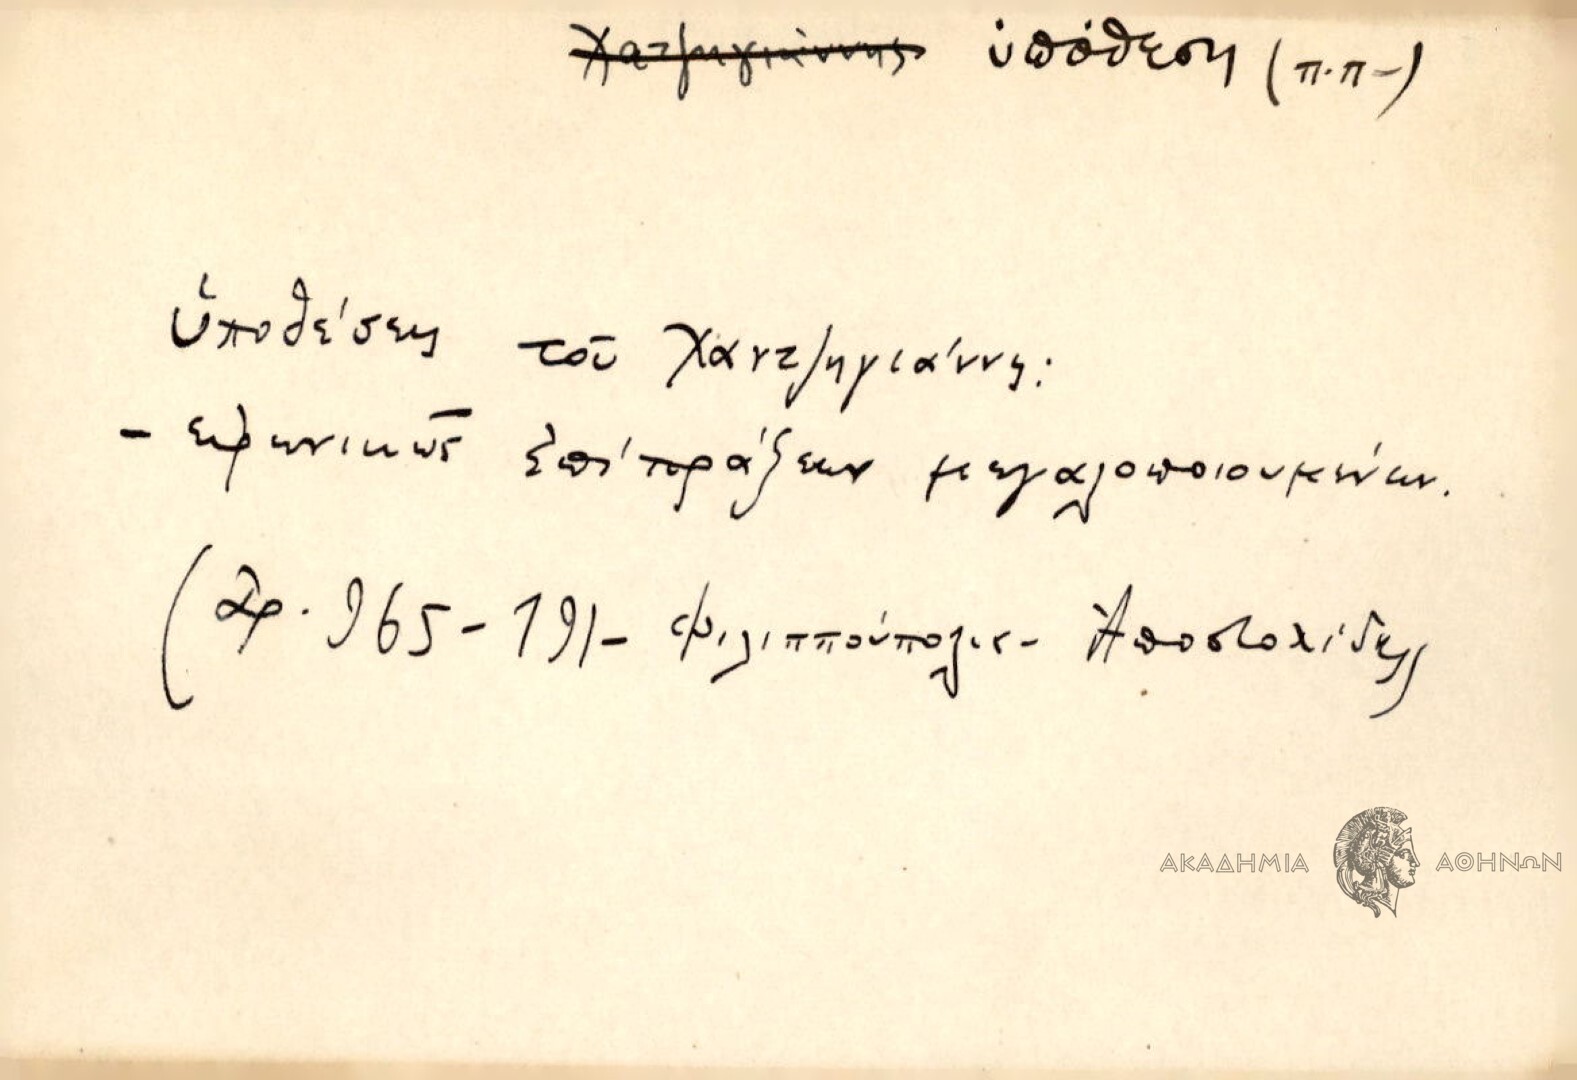 Χατζηγιάννης ὑπόθεση (π.π-)
ὑποθέσεις τοῦ Χαντζηγιάννη:
- εἰρωνικῶς ἐπί πράξεων μεγαλοποιουμένων.
(ἀρ. 965 - 191- Φιλιππούπολις - Ἀποστολίδης)
ΑΚΑΔΗΜΙΑ ΑΘΗΝΩΝ